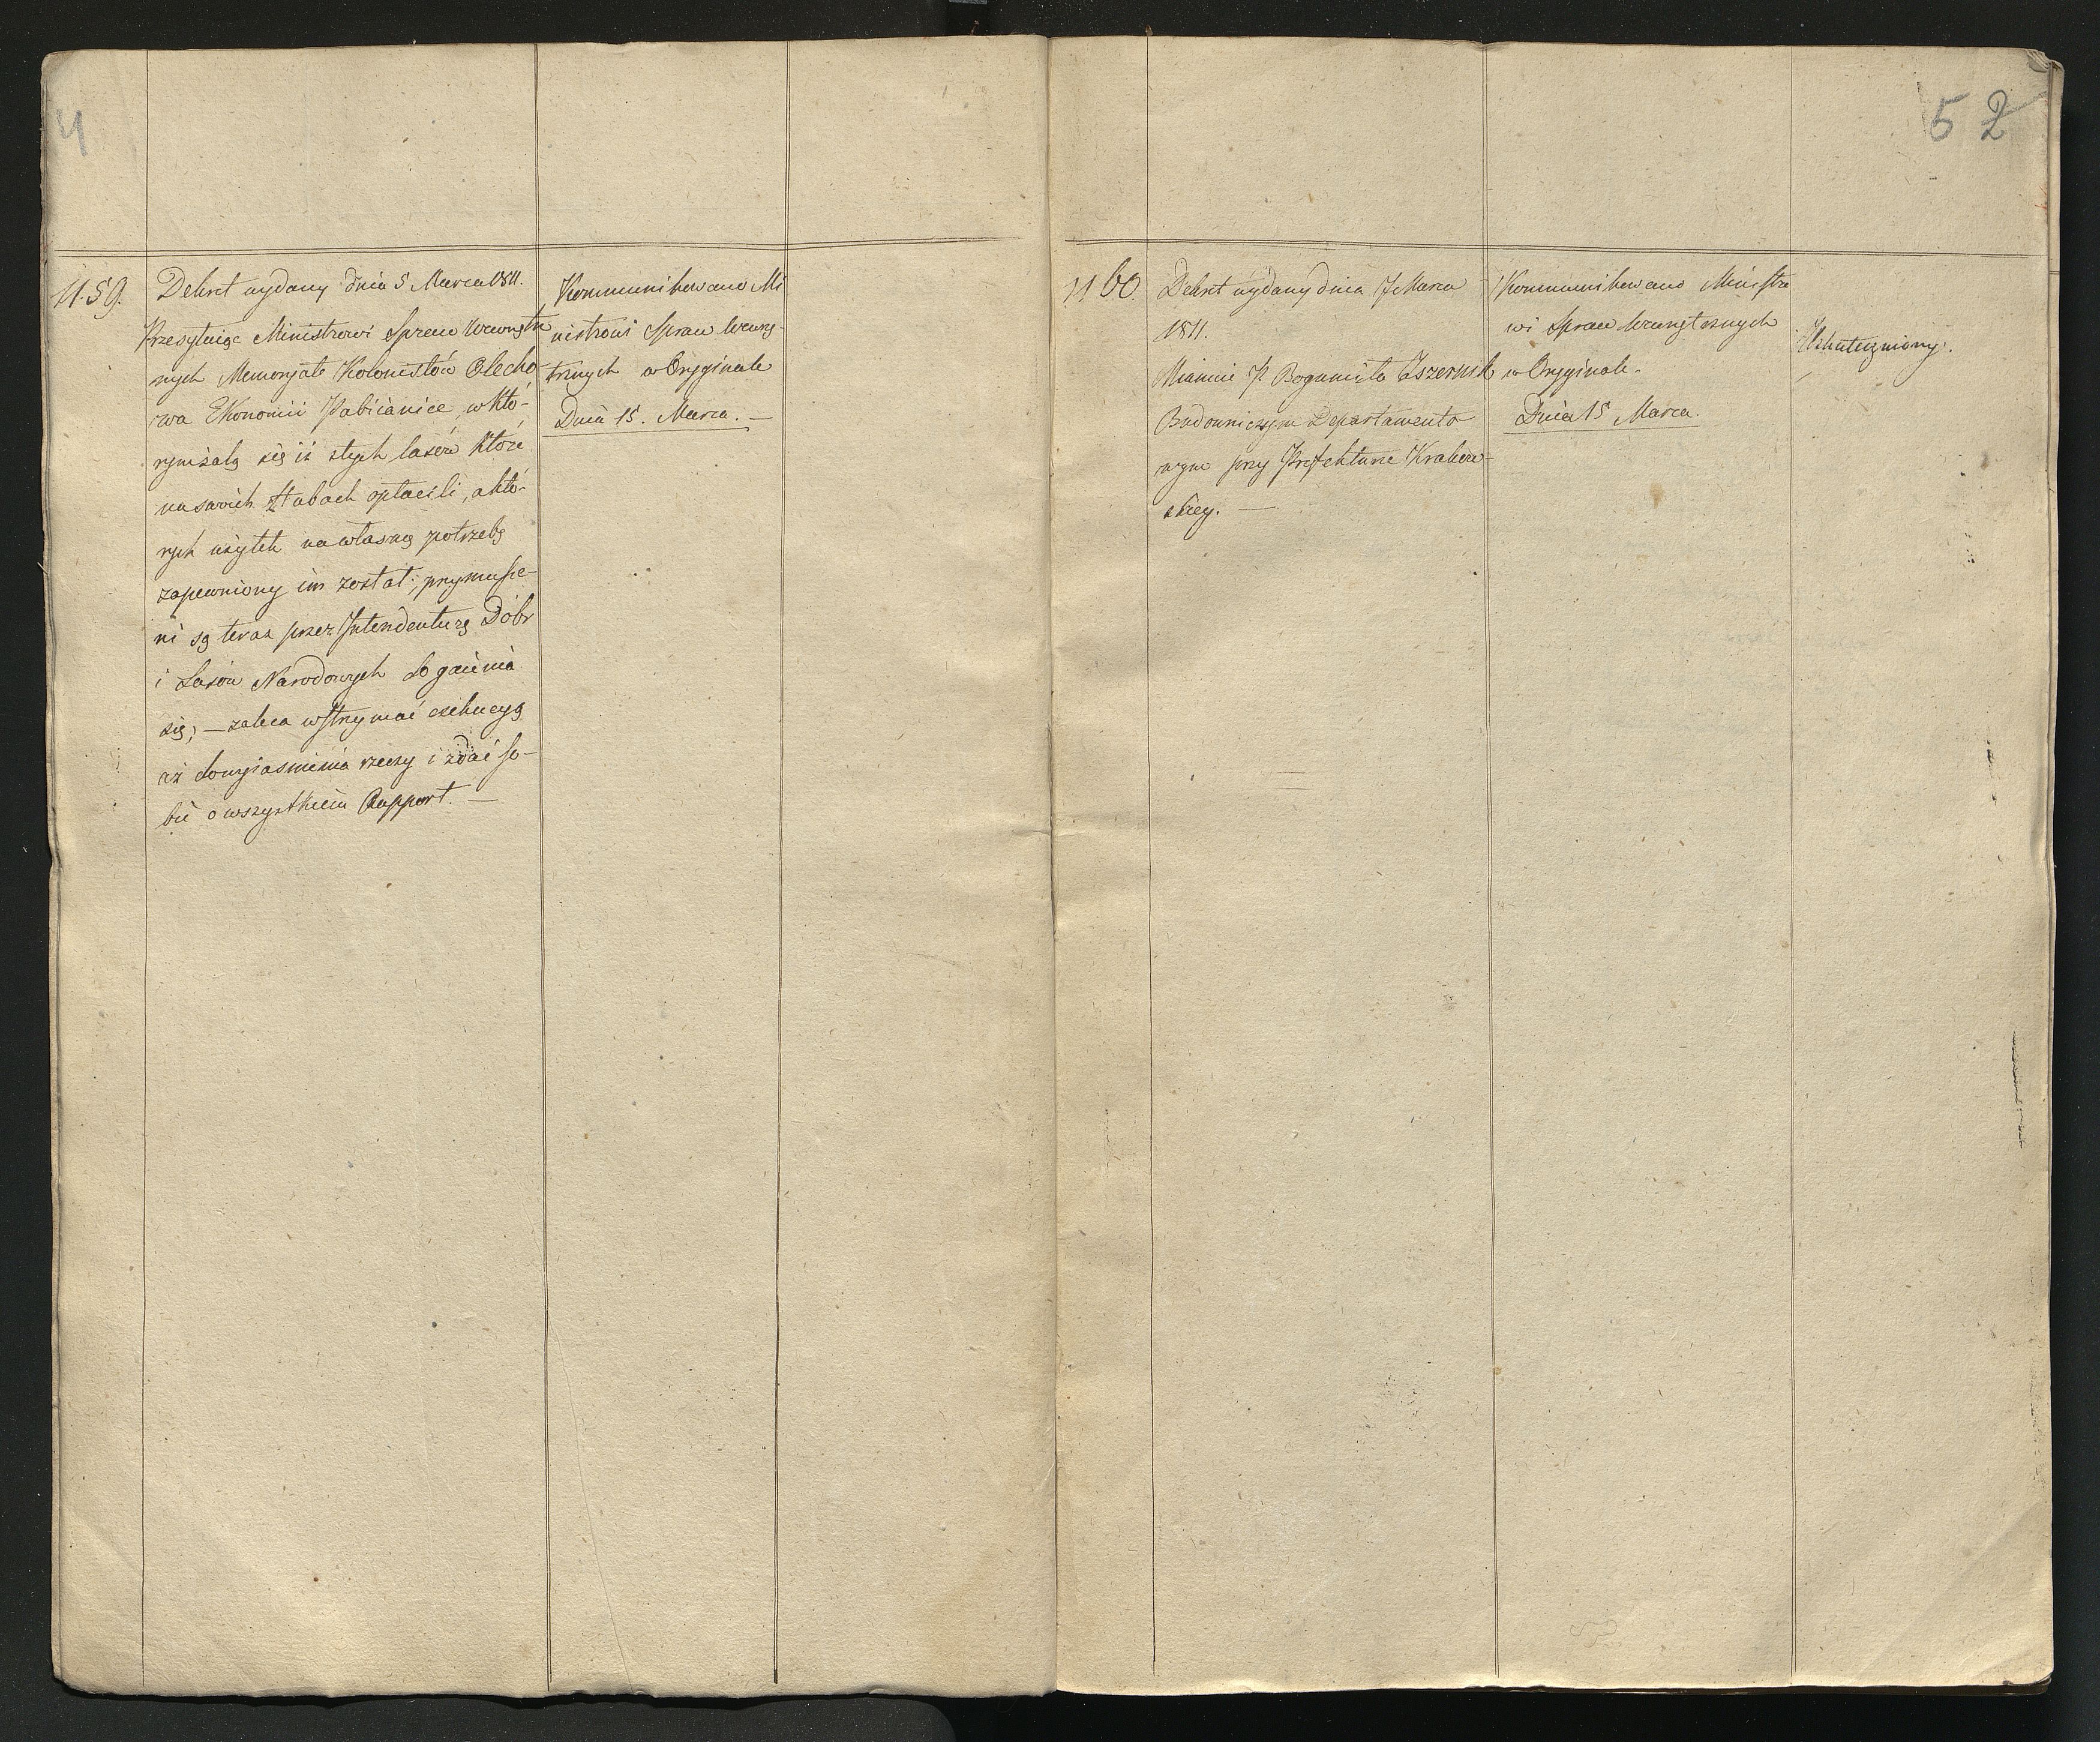 4
11.59.
Dekret wydany dnia 5 Marca 1811.
Przesyłaiąc Ministrowi Spraw Wewnętrz
nych Memoryał Kolonistów Olecho
wa Ekonomii Pabianice, w któ-
rym żalą się iż z tych lasów które
na swoich działach opłacili, a któ-
rych użytek na własną potrzebę
zapewniony im został; przymusze-
ni są teraz przez Intendenturę Dóbr
i Lasów Narodowych do
się; — zaleca wstrzymać exekucyą
aż do wyiaśnienia rzeczy i zdać so-
bie o wszystkiem Rapport. —
Kommunikowano Mi
nistrowi Spraw Wewnę-
trznych w Oryginale
Dnia 15. Marca. —
5 2
1160.
Dekret wydany dnia 7 Marca
1811.
Mianuie P. Bogumiła
Budowniczym Departamento
wym przy Prefekturze Krakow-
skiey. —
Kommunikowano Ministro
wi Spraw Wewnętrznych
w Oryginale.
Dnia 15 Marca.
Uskuteczniony.